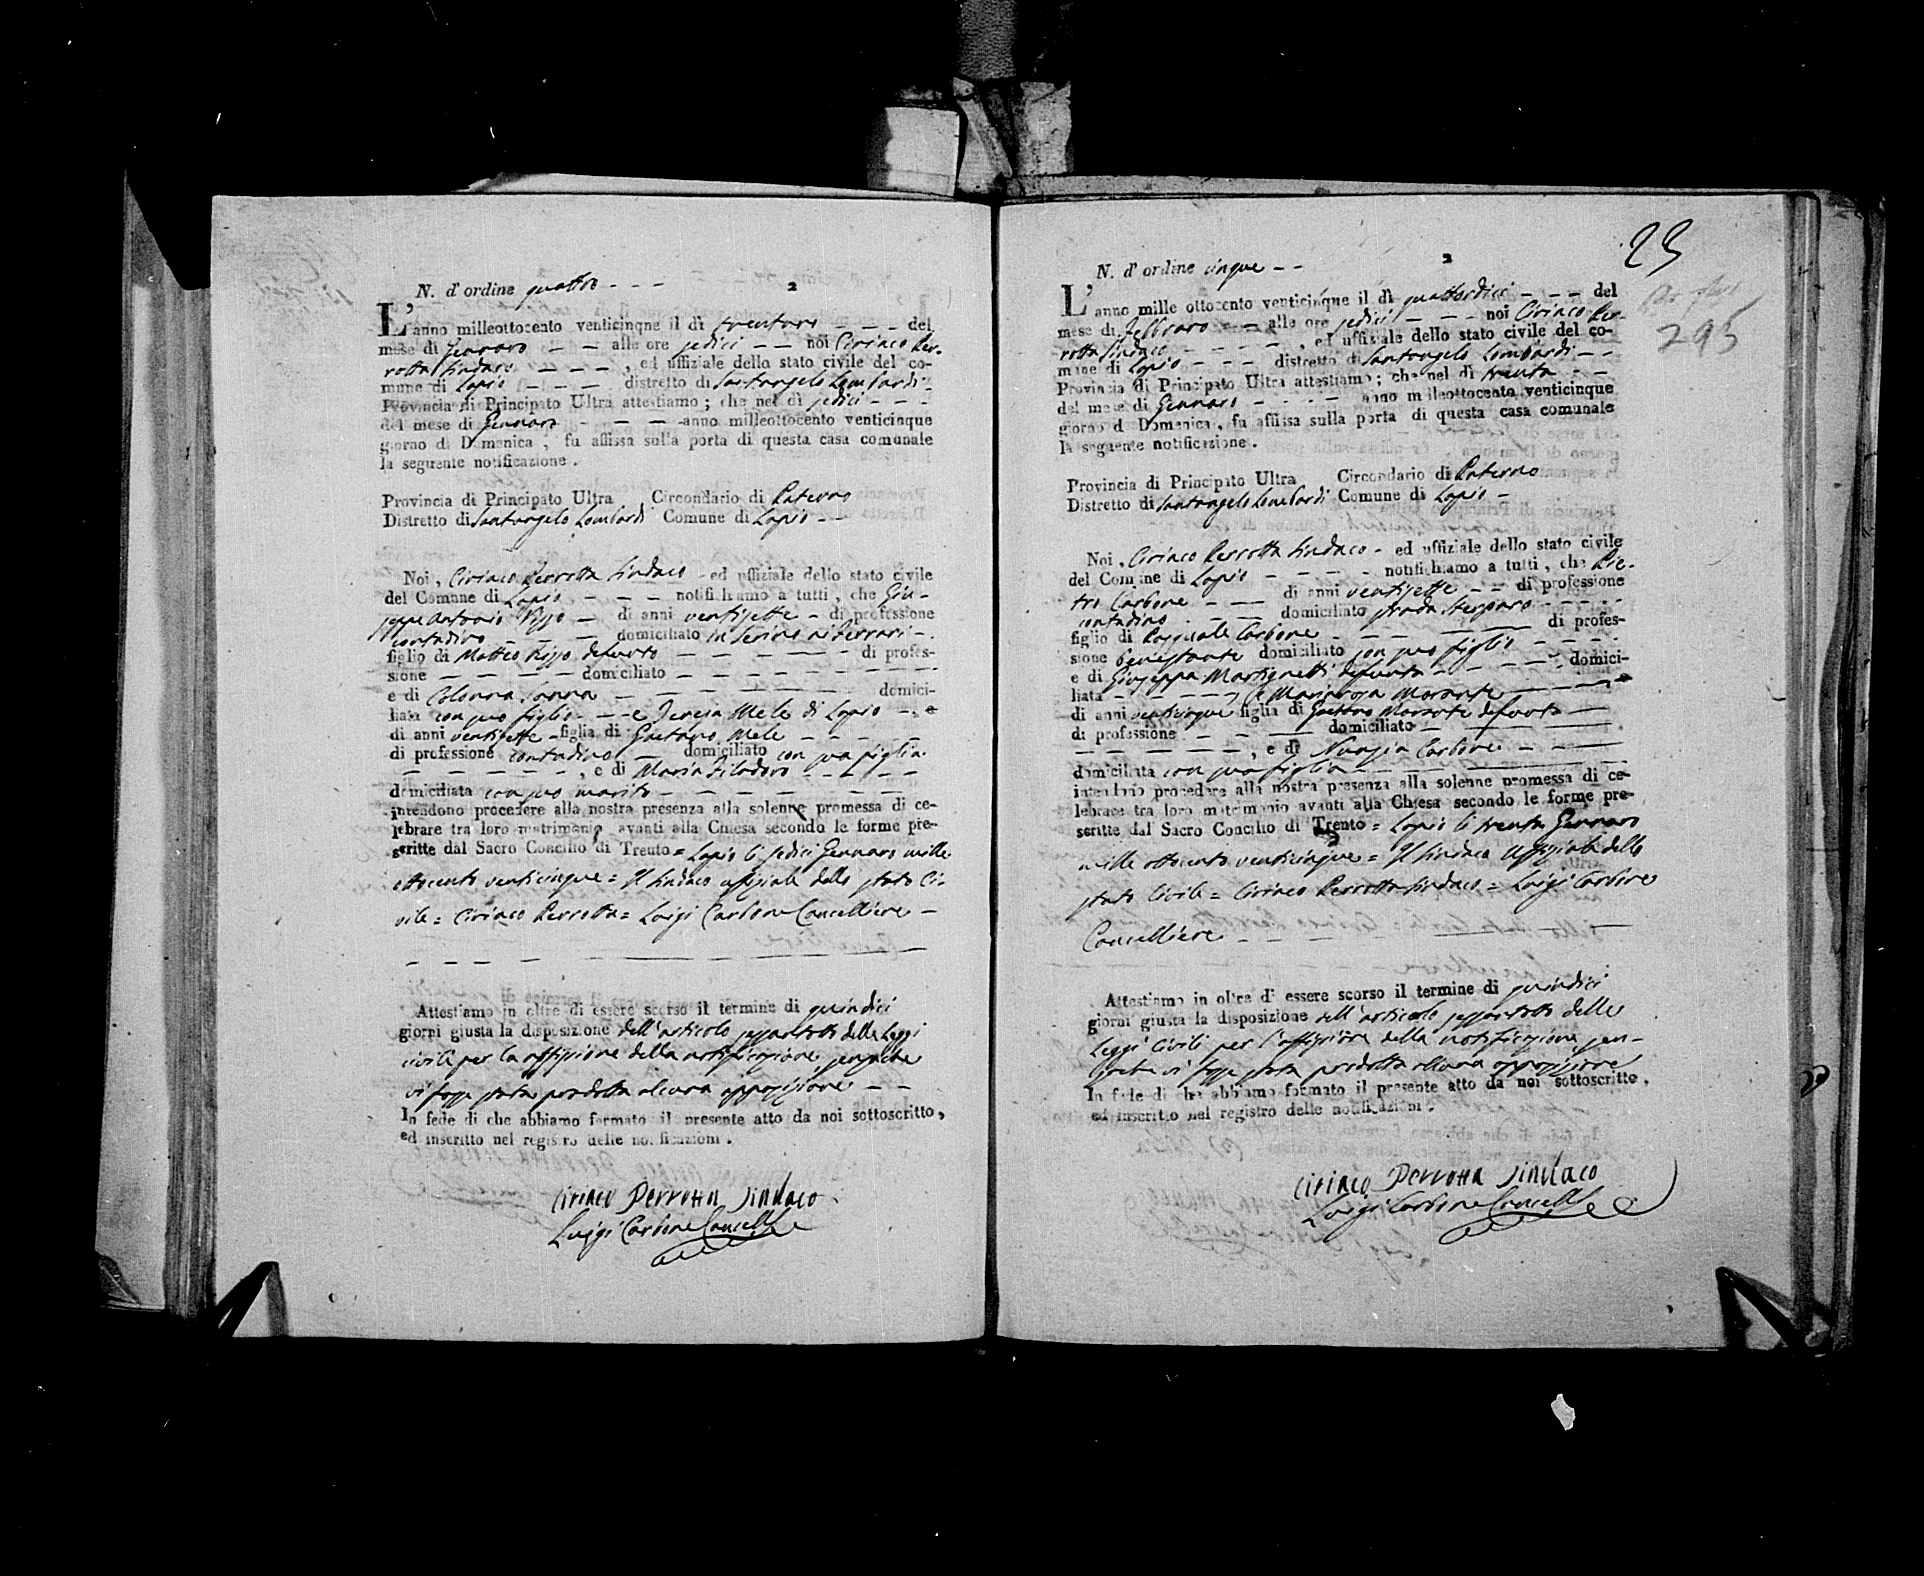 N. d'ordine quattro - - -
2
L'anno milleottocento venticinqne il dì trentuno - - - del
mese di Gennaro - - alle ore sedici - - noi Ciriaco Per-
rotta Sindaco - - - - , ed uffiziale dello stato civile del co-
mune di Lapio - - - distretto di Santangelo Lombardi -
Provincia di Principato Ultra attestiamo ; che nel dì sedici - - -
del mese di Gennaro - - - anno milleottocento venticinque
giorno di Domenica , fu affissa sulla porta di questa casa comunale
la seguente notificazione .
Provincia di Principato Ultra Circondario di Paterno
Distretto di Santangelo Lombardi Comune di Lapio - -
Noi , Ciriaco Perrotta Sindaco - ed uffiziale dello stato civile
del Comune di Lapio - - - notifichiamo a tutti , che Giu-
seppe Antonio Rizzo - di anni ventisette - di professione
contadino - - - domiciliato in Serino ai Ferrari - .
figlio di Matteo Rizzo defunto - - - - - di profes-
sione - - - - - domiciliato - - - - - - -
e di Colonna Sanna - - - - - - domici-
liata con suo figlio - - - e Teresa Mele di Lapio - , e
di anni ventisette - figlia di Gaetano Mele - - - -
di professione contadino - domiciliato con sua figlia
- - - - - - , e di Maria Filadoro - - - - -
domiciliata con suo marito - - - - - - -
intendono procedere alla nostra presenza alla solenne promessa di ce-
lebrare tra loro matrimonio avanti alla Chiesa secondo le forme pre-
scritte dal Sacro Concilio di Trento = Lapio li sedici Gennaro mille
ottocento venticinque = Il Sindaco uffiziale dello stato Ci-
vile = Ciriaco Perrotta = Luigi Carbone Cancelliere -
- - - - - - - - -
Attestiamo in oltre di essere scorso il termine di quindici
giorni giusta la disposizione dell'articolo sessantotto delle Leggi
civili per la affissione della notificazione, senzache
vi fosse stata prodotta alcuna opposizione - -
In fede di che abbiamo formato il presente atto da noi sottoscritto,
ed inscritto nel registro delle notificazioni .
Ciriaco Perrotta Sindaco
Luigi Carbone Cancell.
23
295
N. d'ordine cinque - -
2
L'anno mille ottocento venticinque il dì quattordici - - - del
mese di Febbraro - - alle ore sedici - - - noi Ciriaco Per-
rotta Sindaco - - - - - , ed uffiziale dello stato civile del co-
mune di Lapio - - - distretto di Santangelo Lombardi - -
Provincia di Principato Ultra attestiamo ; che nel dì trenta - -
del mese di Gennaro - - - - anno milleottocento venticinque
giorno di Domenica , fu affissa sulla porta di questa casa comunale
la seguente notificazione .
Provincia di Principato Ultra Circondario di Paterno
Distretto di Santangelo Lombardi Comune di Lapio -
Noi , Ciriaco Perrotta Sindaco - ed uffiziale dello stato civile
del Comune di Lapio - - - - notifichiamo a tutti , che Pie-
tro Carbone - - - di anni ventisette - - di professione
contadino - - - domiciliato strada - - - -
figlio di Pasquale Carbone - - - - - di profes-
sione benestante domiciliato con suo figlio - - - -
e di Giuseppa Martignetti defunta - - - - - domici-
liata - - - - - , e Mariarosa Morante - - - -
di anni venticinque figlia di Gaetano Morante defunto -
di professione - - - - domiciliato - - - -
- - - - - - , e di Nunzia Carbone - - -
domiciliata con sua figlia - - - - -
intendono procedere alla nostra presenza alla solenne promessa di ce-
lebrare tra loro matrimonio avanti alla Chiesa secondo le forme pre-
scritte dal Sacro Concilio di Trento = Lapio li trenta Gennaro
mille ottocento venticinque = Il Sindaco Uffiziale dello
stato Civile = Ciriaco Perrotta Sindaco = Luigi Carbone
Cancelliere - - - - - - -
Attestiamo in oltre di essere scorso il termine di quindici
giorni giusta la disposizione dell'articolo sessantotto delle
Leggi Civili per l'affissione della notificazione, sen-
zache vi fosse stata prodotta alcuna opposizione
In fede di che abbiamo formato il presente atto da noi sottoscritto ,
ed inscritto nel registro delle notificazioni .
Ciriaco Perrotta Sindaco
Luigi Carbone Cancell.